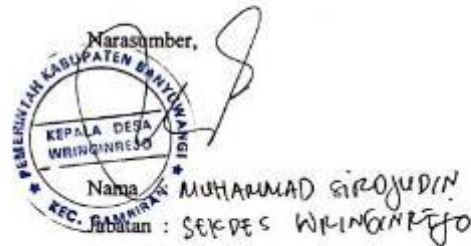 Narasumber,
PEMERINTAH KABUPATEN BANYUWANGI
KEPALA DESA
WRINGINREJO
KEC. GAMBIRAN
Nama : MUHAMMAD SIROJUDIN
Jabatan : SEKDES WRINGINREJO